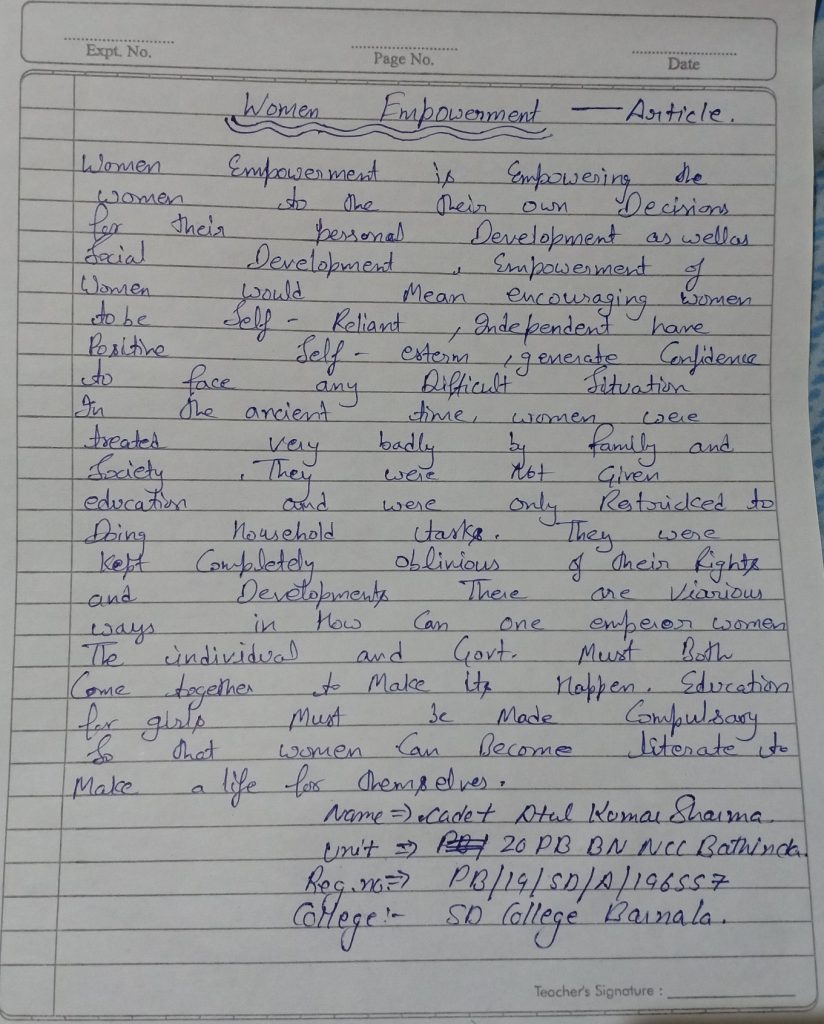 Expt. No.
Page No.
Date
Women Empowerment — Article.
Women Empowerment is Empowering the
women to the their own Decisions
for their personal Development as wellas
Social Development , Empowerment of
Women would Mean encouraging women
to be Self - Reliant , Independent have
Positive Self - esterm , generate Confidence
to face any Difficult Situation
In the ancient time, women were
treated very badly by family and
Society . They were Not Given
education and were only Restricked to
Doing Household tasks. They were
kept Completely oblivious of their Rights
and Developments There are Viarious
ways in How Can one emperor women
The individual and Govt. Must Both
Come together to Make its Happen. Education
for girls Must be Made Compulsary
So that women Can Become literate to
Make a life for themselves.
Name => Cadet Atul Kumar Sharma.
Unit => 20 PB BN NCC Bathinda.
Reg. no => PB/19/SD/A/196557
College :- SD College Barnala.
Teacher's Signature :